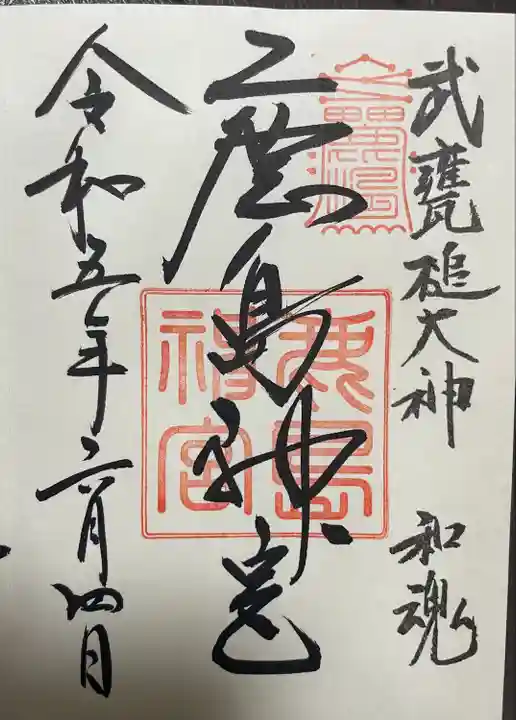 武甕槌大神 和魂
鹿島神宮
令和五年二月四日
鹿島
神宮